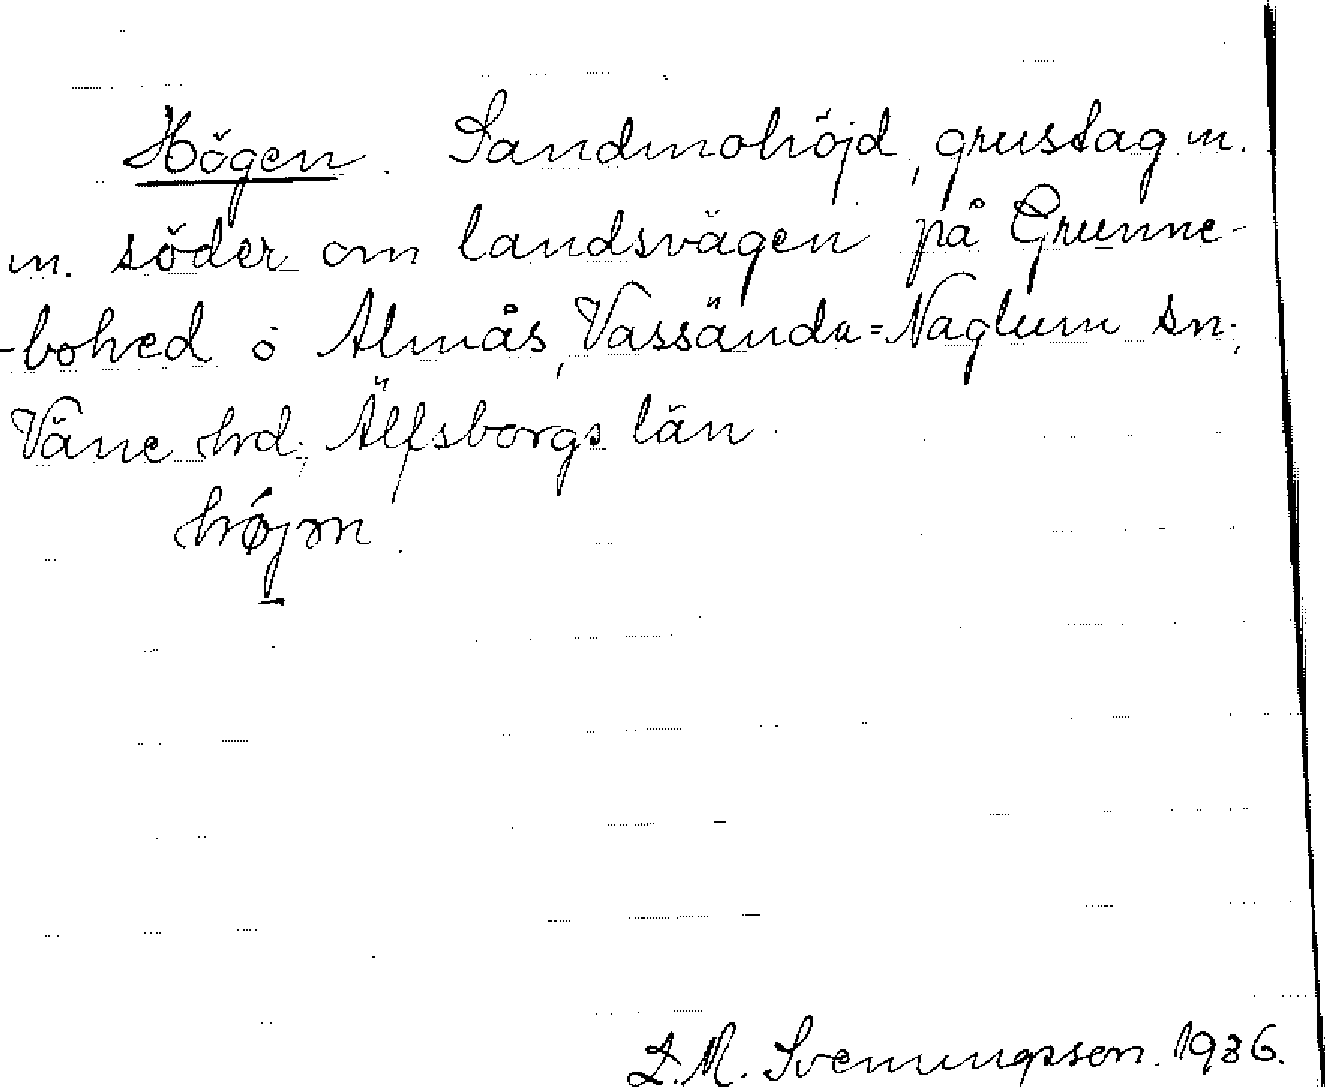 Högen. Sandmohöjd, grustag m.
m. söder om landsvägen på Grunne-
-bohed ö Almås, Vassända=Naglum sn;
Väne hd; Älfsborgs län.
L.M. Svenungsson. 1936.